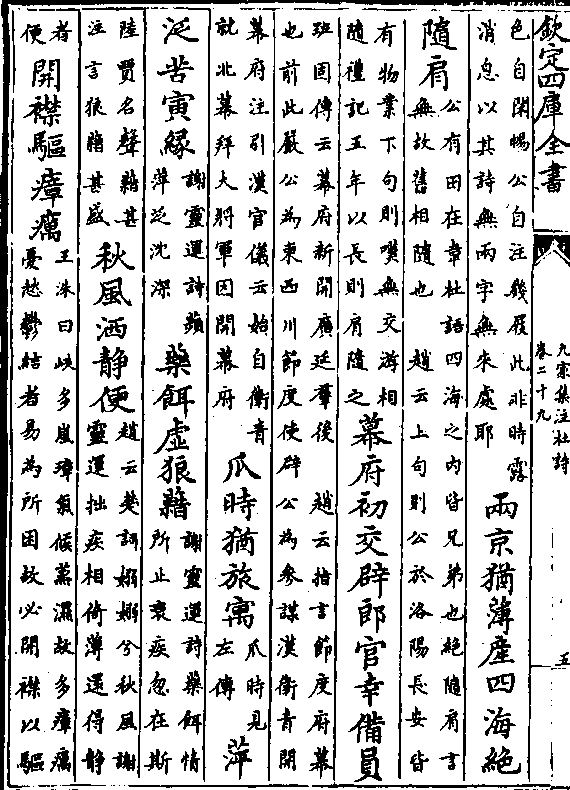 欽定四庫全書
九家集注杜詩
卷二十九
五
色自閑暢公自注幾屐此非時露
消息以其詩無兩字無來處耶
兩京猶薄産四海絶
隨肩
公有田在韋杜語四海之内皆兄弟也絶隨肩言
無故舊相隨也 趙云上句則公於洛陽長安皆
有物業下句則嘆無交游相
隨禮記五年以長則肩隨之
幕府初交辟郎官幸備員
班固傳云幕府新開廣延羣後 趙云指言節度府幕
也前此嚴公為東西川節度使辟公為參謀漢衛青開
幕府注引漢官儀云始自衛青
就北幕拜大將軍因開幕府
瓜時猶旅寓
瓜時見
左傳
萍
泛苦寅緣
謝靈運詩蘋
萍泛沈深
藥餌虛狼藉
謝靈運詩藥餌情
所止衰疾忽在斯
陸賈名聲藉甚
注言狼藉甚盛
秋風洒静便
趙云楚詞嫋嫋兮秋風謝
靈運拙疾相倚薄還得静
者
便
開襟驅瘴癘
王洙曰峽多嵐瘴氣候蒸濕故多瘴癘
憂愁鬱結者易為所困故必開襟以驅